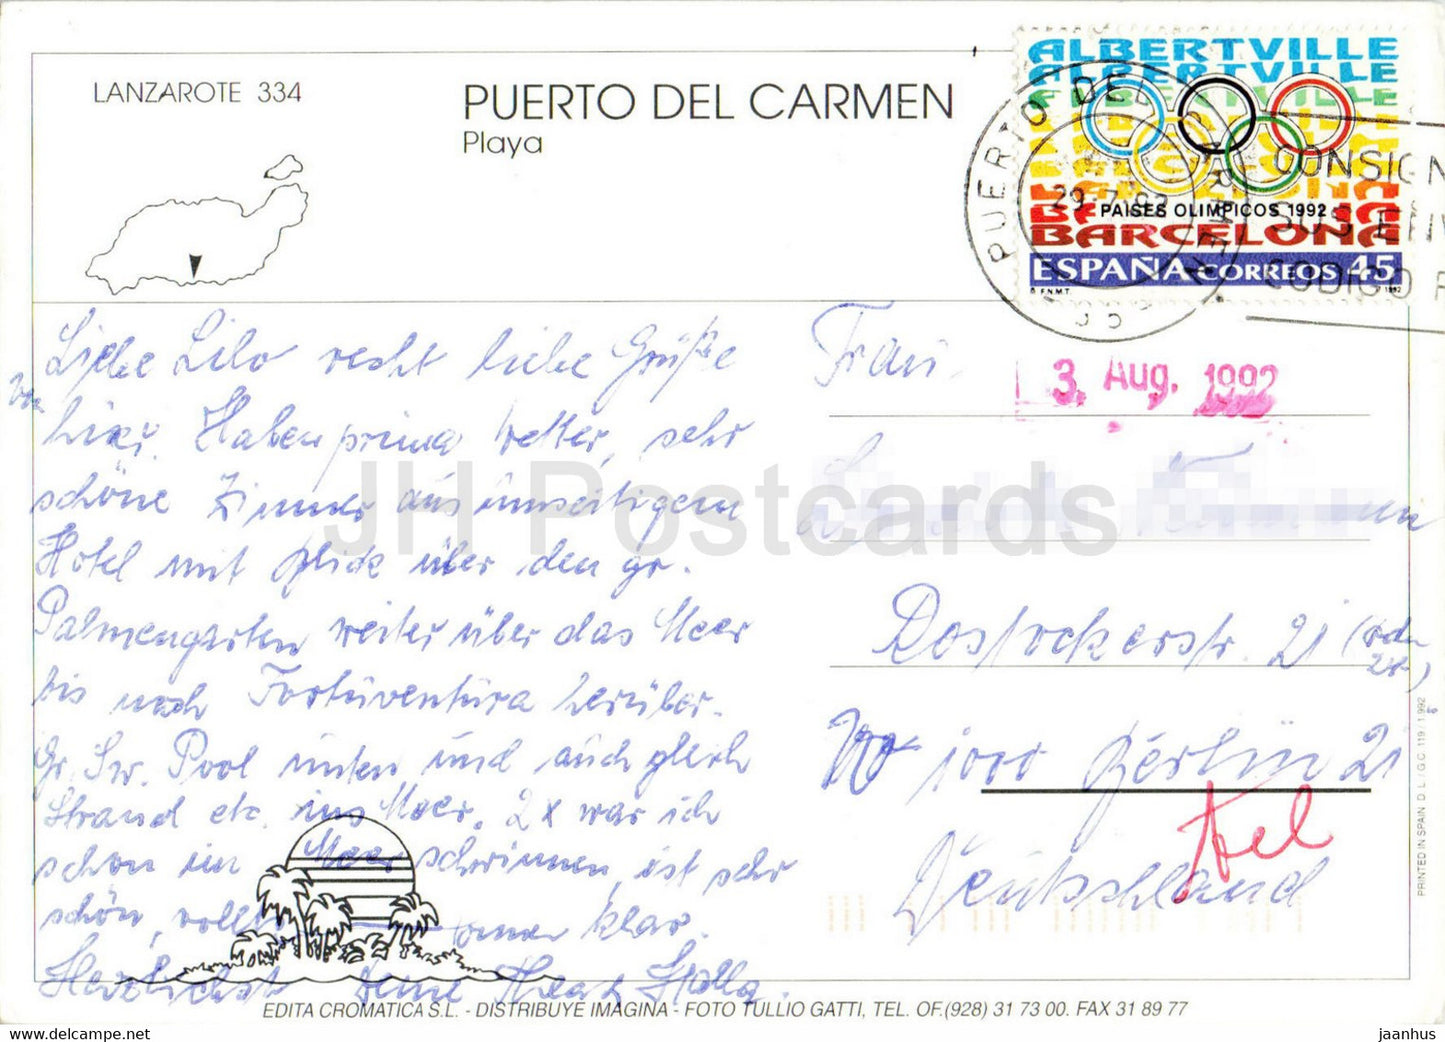 LANZAROTE 334
PUERTO DEL CARMEN
Playa
ALBERTVILLE
ALBERTVILLE
PAISES OLIMPICOS 1992
BARCELONA
ESPAÑA CORREOS 45
© F.N.M.T. 1992
PUERTO DEL CARMEN
29-7-92
CONSIGN
SUS ENV
CODIGO P
3. Aug. 1992
Liebe Lilo recht liebe Grüße
von hier. Haben prima Wetter, sehr
schöne Zimmer aus umseitigem
Hotel mit Blick über den gr.
Palmengarten weiter über das Meer
bis nach Fortüventüra herüber.
Gr. Sw. Pool unten und auch gleich
Strand etc. ins Meer. 2x war ich
schon im Meer schwimmen, ist sehr
schön, klar.
Herzlichst Deine
Frau
Rostockerstr. 21 (oder
1000 Berlin 21
Deutschland
Tel
JH Postcards
PRINTED IN SPAIN D. L. / G.C. 119 / 1.992
EDITA CROMATICA S.L. - DISTRIBUYE IMAGINA - FOTO TULLIO GATTI, TEL. OF.(928) 31 73 00. FAX 31 89 77
www.delcampe.net
jaanhus